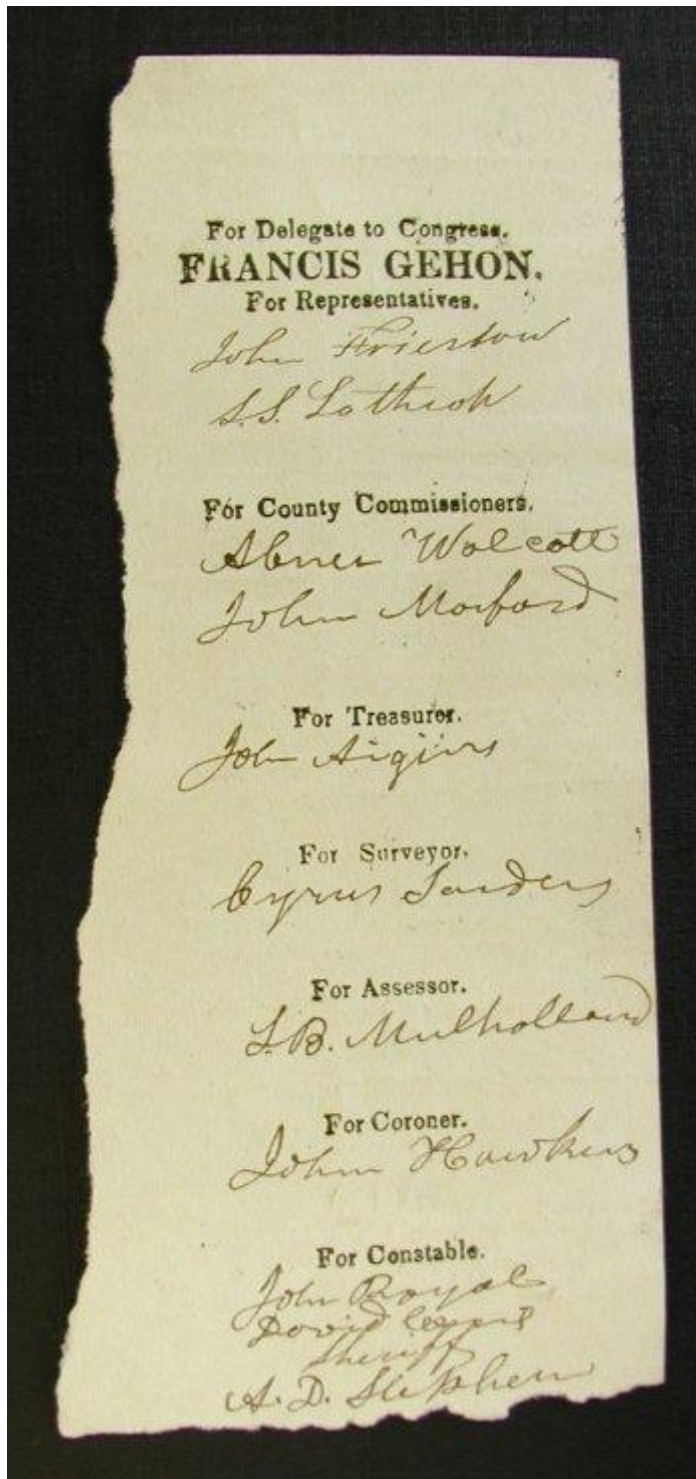 For Delegate to Congress.
FRANCIS GEHON.
For Representatives.
John Frierson
S.S. Lothrop
For County Commissioners.
Abner Wolcott
John Morford
For Treasurer.
John
For Surveyor.
Cyrus Sanders
For Assessor.
S.B. Mulholland
For Coroner.
John Hawkins
For Constable.
John Royal
David
Sheriff
A. D. Stephen